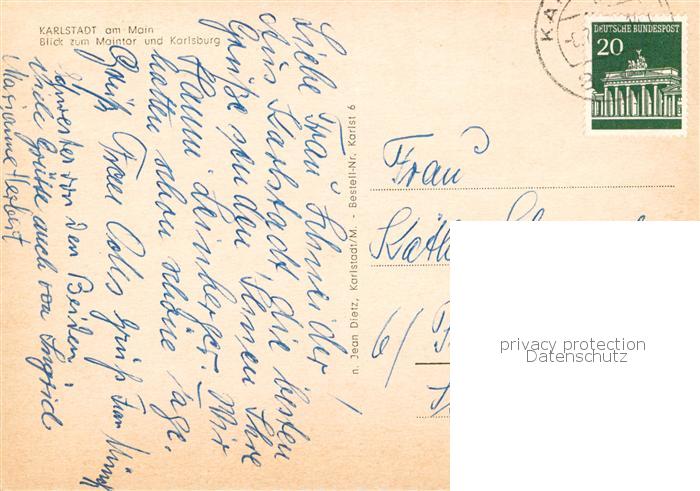 KARLSTADT am Main
Blick zum Maintor und Karlsburg
Liebe Frau Schneider!
Aus Karlstadt, die besten
Grüße senden Ihnen Ihre
Hanni Leinberger. Wir
hatten schon schöne Tage.
Gruß Frau Gruß Frau
Schwester von den Beiden
viele Grüße auch von Ingrid
Marianne Herbert
n. Jean Dietz, Karlstadt/M. - Bestell-Nr. Karlst 6
KA
DEUTSCHE BUNDESPOST
20
Frau
Käthe
6/
privacy protection
Datenschutz